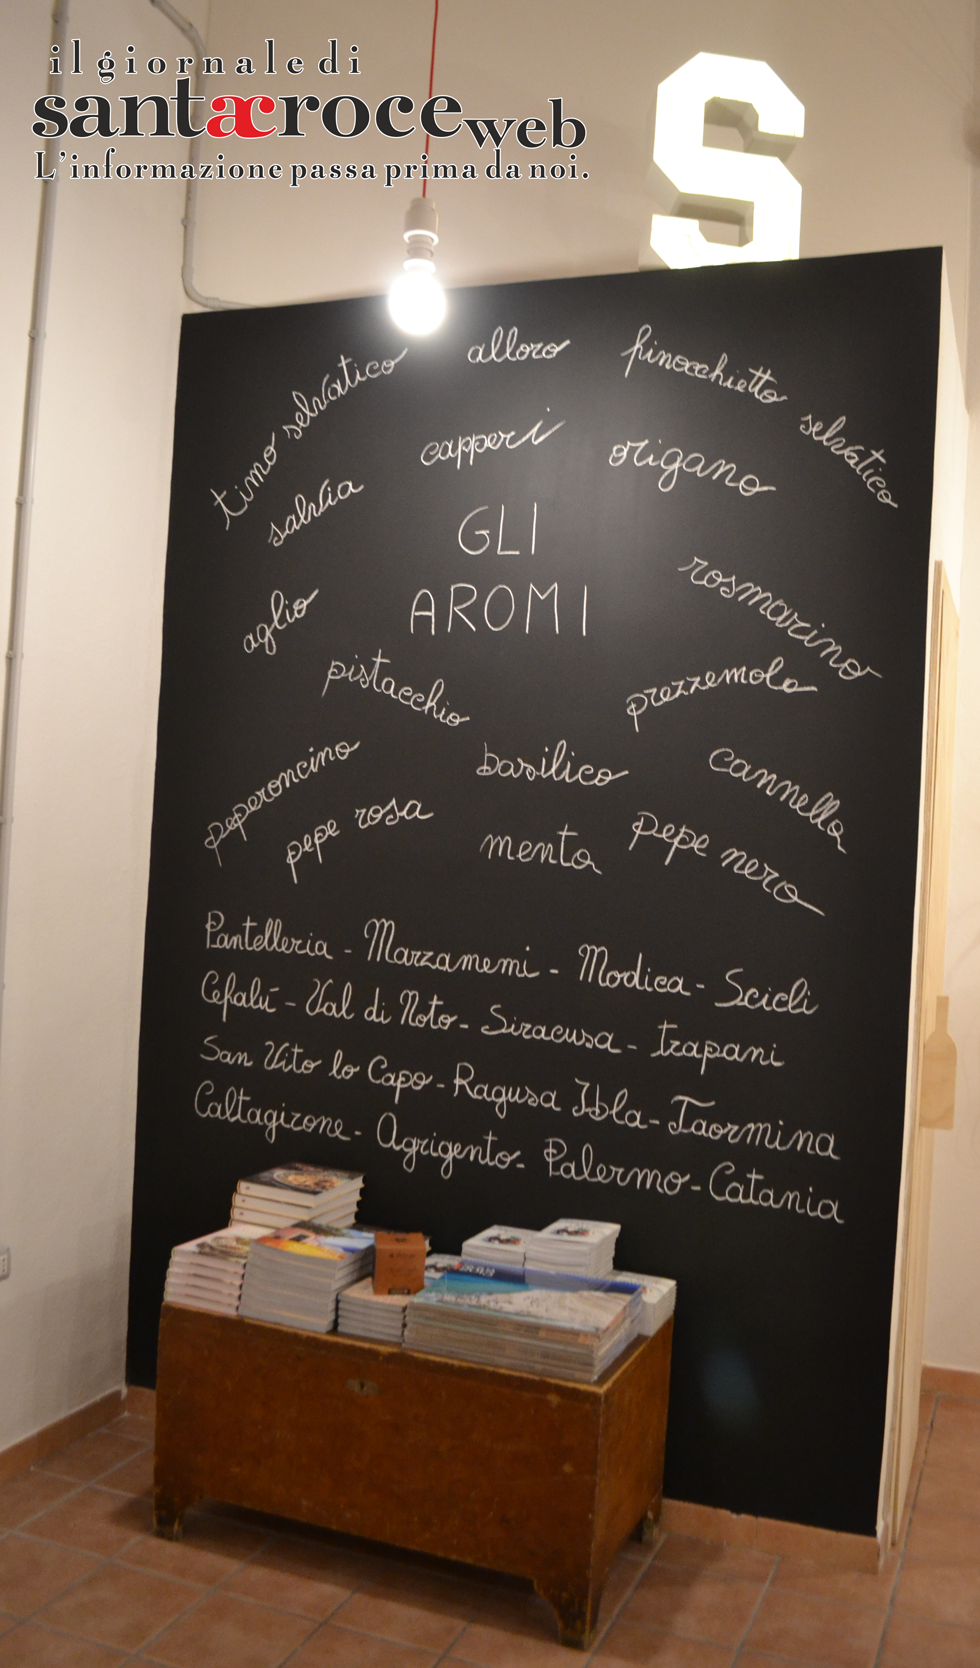 il giornale di
santacroceweb
L'informazione passa prima da noi.
S
timo selvatico alloro finocchietto selvatico
salvia capperi origano
GLI
AROMI
aglio rosmarino
pistacchio prezzemolo
peperoncino basilico cannella
pepe rosa menta pepe nero
Pantelleria - Marzamemi - Modica - Scicli
Cefalú - Val di Noto - Siracusa - trapani
San Vito lo Capo - Ragusa Ibla - Taormina
Caltagirone - Agrigento - Palermo - Catania